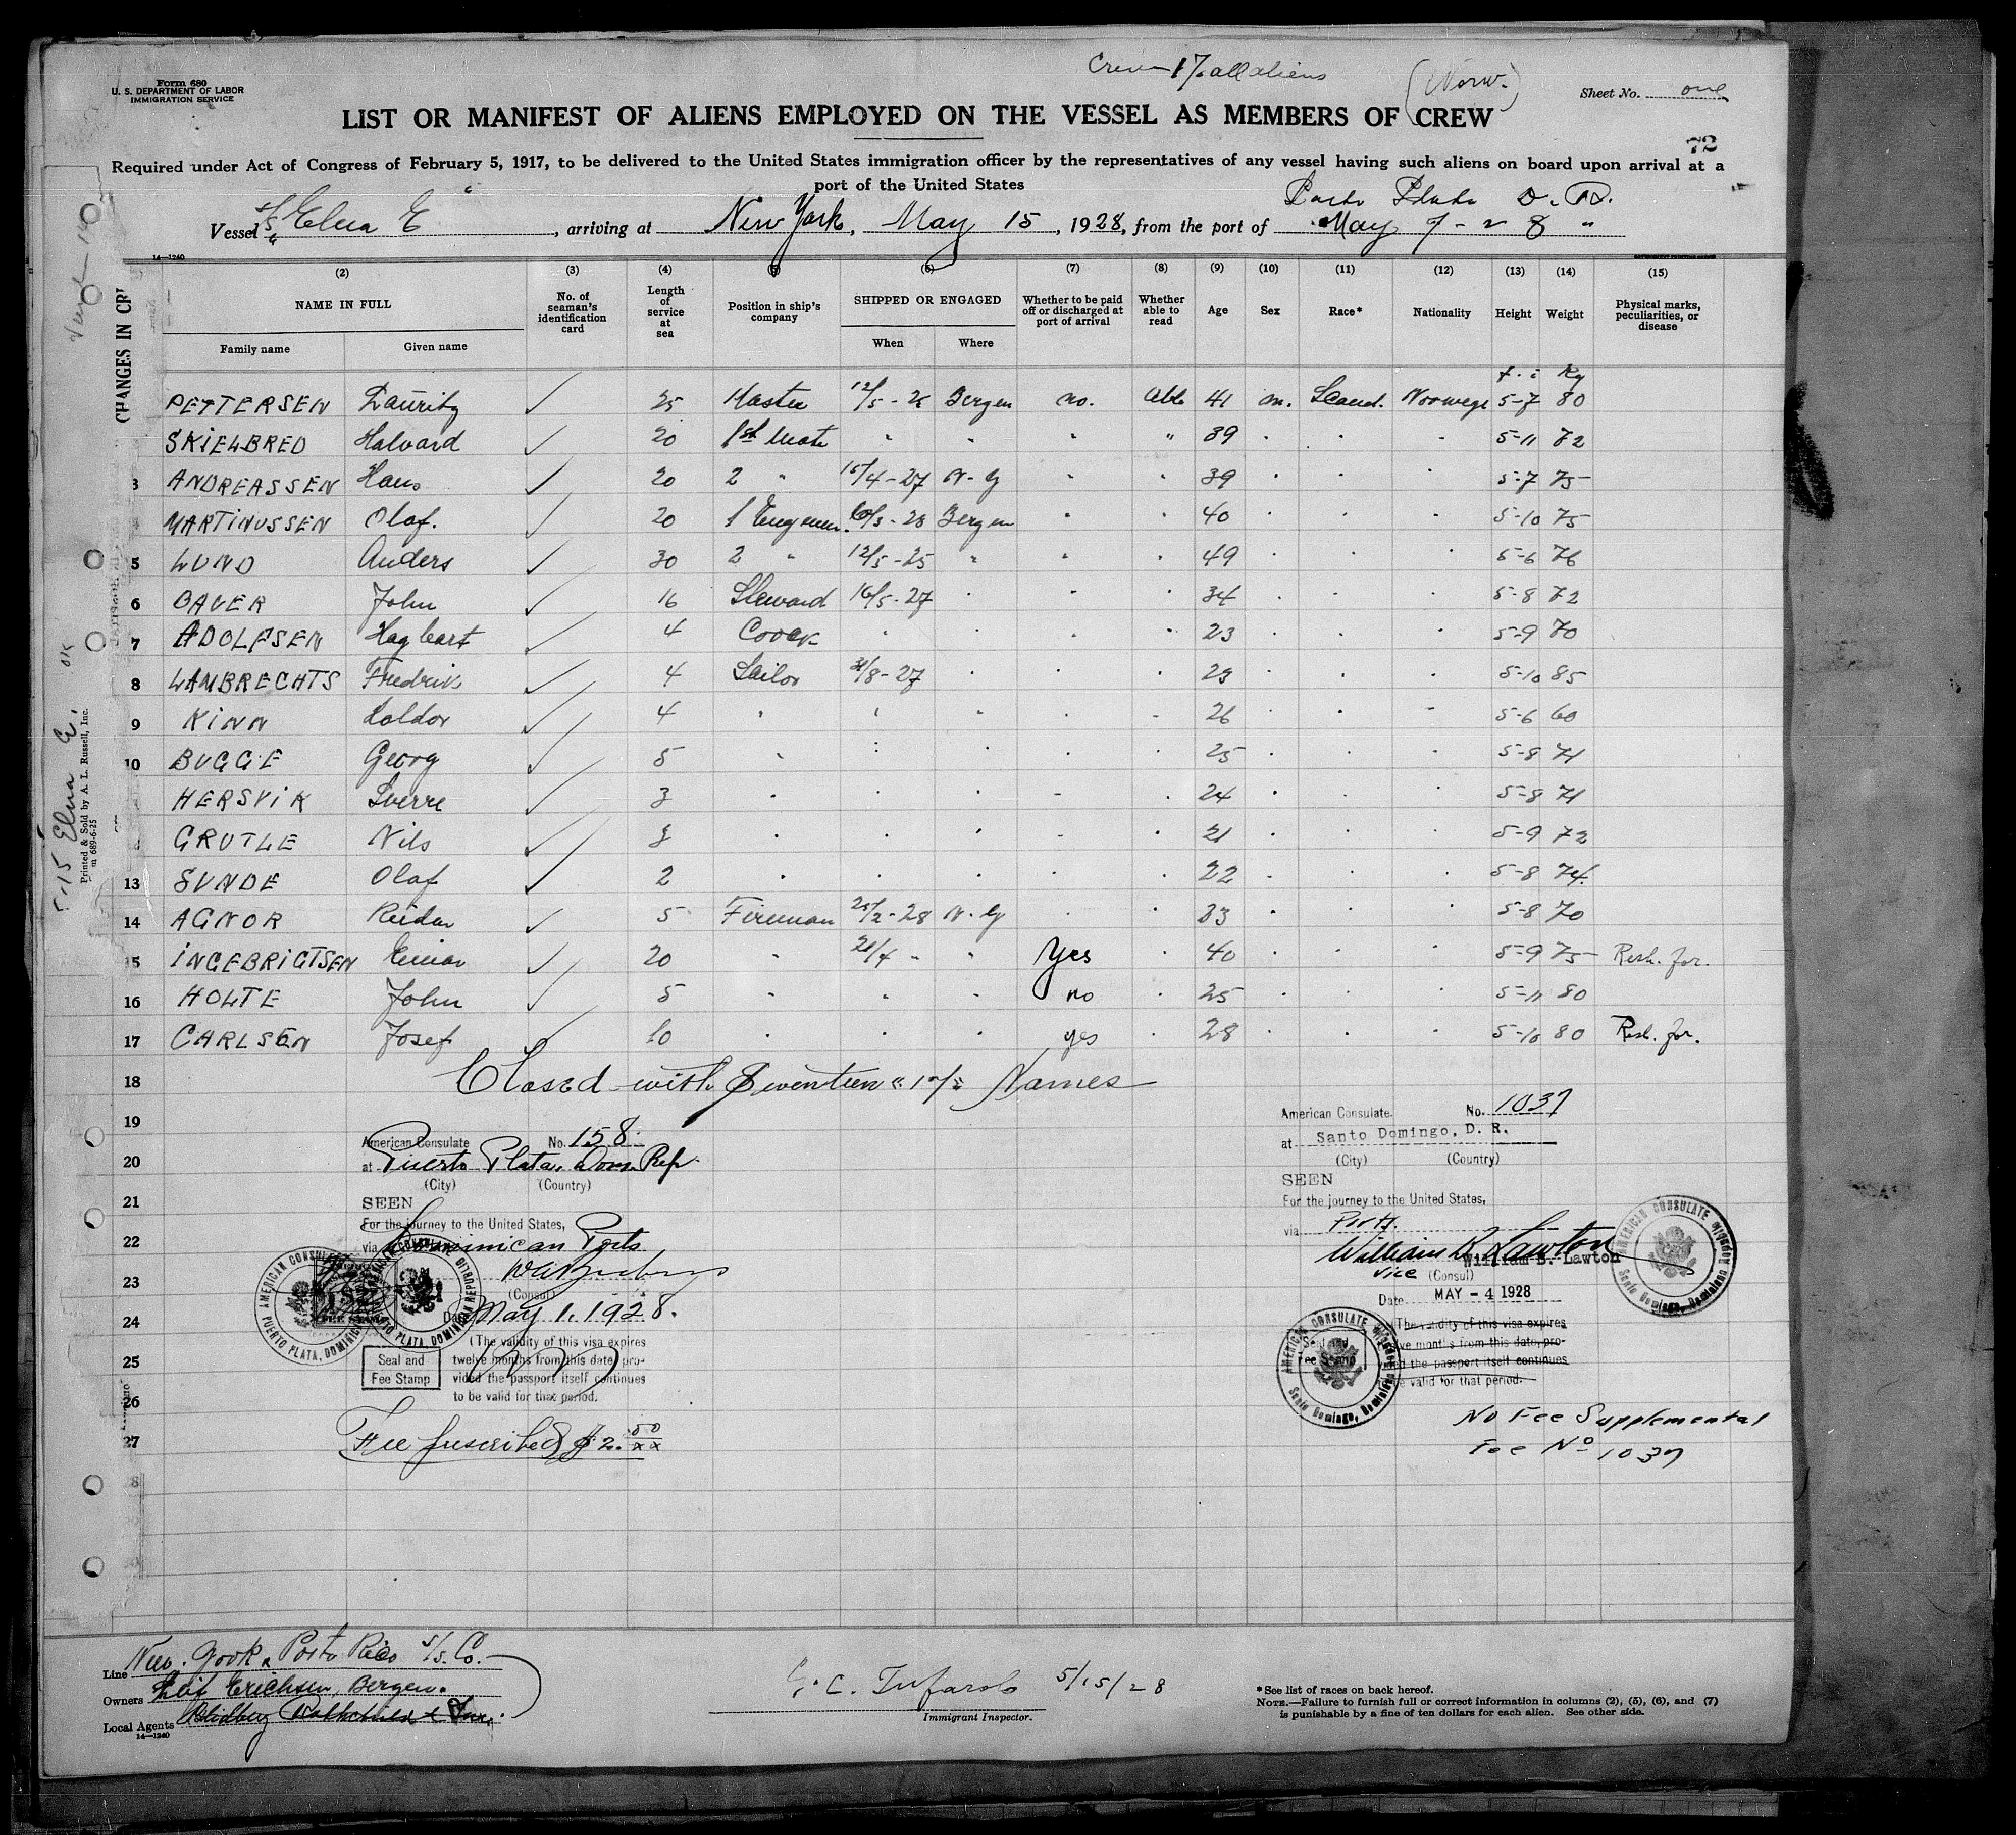 Form 680
U. S. DEPARTMENT OF LABOR
IMMIGRATION SERVICE
Crew 17 all aliens
(Norw.)
Sheet No. one
LIST OR MANIFEST OF ALIENS EMPLOYED ON THE VESSEL AS MEMBERS OF CREW
72
Required under Act of Congress of February 5, 1917, to be delivered to the United States immigration officer by the representatives of any vessel having such aliens on board upon arrival at a
port of the United States
Vessel S/S "Elna E", arriving at New York, May 15, 1928, from the port of Porto Plata D. R. May 7-28
14—1240
CHANGES IN
(2) (3) (4) (5) (6) (7) (8) (9) (10) (11) (12) (13) (14) (15)
NAME IN FULL No. of seaman's identification card Length of service at sea Position in ship's company SHIPPED OR ENGAGED Whether to be paid off or discharged at port of arrival Whether able to read Age Sex Race* Nationality Height Weight Physical marks, peculiarities, or disease
Family name Given name When Where
f. i Kg
PETTERSEN Lauritz ✓ 25 Master 12/5-25 Bergen no. Able 41 m. Scand. Norwege 5-7 80
SKIELBRED Halvard ✓ 20 1st Mate " " " " 39 " " " 5-11 72
3 ANDREASSEN Hans ✓ 20 2 " 15/4-27 N-Y " " 39 " " " 5-7 75
MARTINUSSEN Olaf. ✓ 20 1 Engineer 10/3-28 Bergen " " 40 " " " 5-10 75
5 LUND Anders ✓ 30 2 " 12/5-25 " " " 49 " " " 5-6 76
6 BAUER John ✓ 16 Steward 16/5-27 " " " 34 " " " 5-8 72
7 ADOLFSEN Hagbart ✓ 4 Coock " " " " 23 " " " 5-9 70
8 LAMBRECHTS Fredrik ✓ 4 Sailor 31/8-27 " " " 23 " " " 5-10 85
9 KINN Loldor ✓ 4 " " " " " 26 " " " 5-6 60
10 BUGGE Georg ✓ 5 " " " " " 25 " " " 5-8 71
HERSVIK Sverre ✓ 3 " " " " " 24 " " " 5-8 71
GRUTLE Nils ✓ 3 " " " " " 21 " " " 5-9 72
13 SUNDE Olaf ✓ 2 " " " " " 22 " " " 5-8 74.
14 AGNOR Reidar ✓ 5 Fireman 25/2-28 N-Y " " 33 " " " 5-8 70
15 INGEBRIGTSEN Einar ✓ 20 " 21/4 " " Yes " 40 " " " 5-9 75 Resh. for.
16 HOLTE John ✓ 5 " " " no " 25 " " " 5-11 80
17 CARLSEN Josef ✓ 10 " " " yes " 28 " " " 5-10 80 Resh. for.
18 Closed with Seventeen "17" Names
19
20
21
22
23
24
25
26
27
American Consulate No. 158.
at Puerto Plata, Dom Rep.
(City) (Country)
SEEN
For the journey to the United States,
via Dominican Ports
(Consul)
Date May 1, 1928.
(The validity of this visa expires
twelve months from this date, pro-
vided the passport itself continues
to be valid for that period.
Seal and
Fee Stamp
AMERICAN CONSULATE PUERTO PLATA, DOMINICAN REPUBLIC
Fee prescribed $2.00/xx
American Consulate No. 1037
at Santo Domingo, D. R.
(City) (Country)
SEEN
For the journey to the United States,
via Ports.
William B. Lawton
William B. Lawton
Vice (Consul)
Date MAY -4 1928
(The validity of this visa expires
ve months from this date, pro-
d the passport itself continues
e valid for that period.
Seal and
Fee Stamp
AMERICAN CONSULATE Santo Domingo, Dominican Republic
AMERICAN CONSULATE Santo Domingo, Dominican Republic
No Fee Supplemental
Fee No 1037
5-15 Elna E. OK
Printed & Sold by A. L. Russell, Inc.
689-6-25
Line New York & Porto Rico S/S. Co.
Owners Leif Erichsen, Bergen.
Local Agents
14—1240
5/15/28
Immigrant Inspector.
*See list of races on back hereof.
NOTE.—Failure to furnish full or correct information in columns (2), (5), (6), and (7)
is punishable by a fine of ten dollars for each alien. See other side.